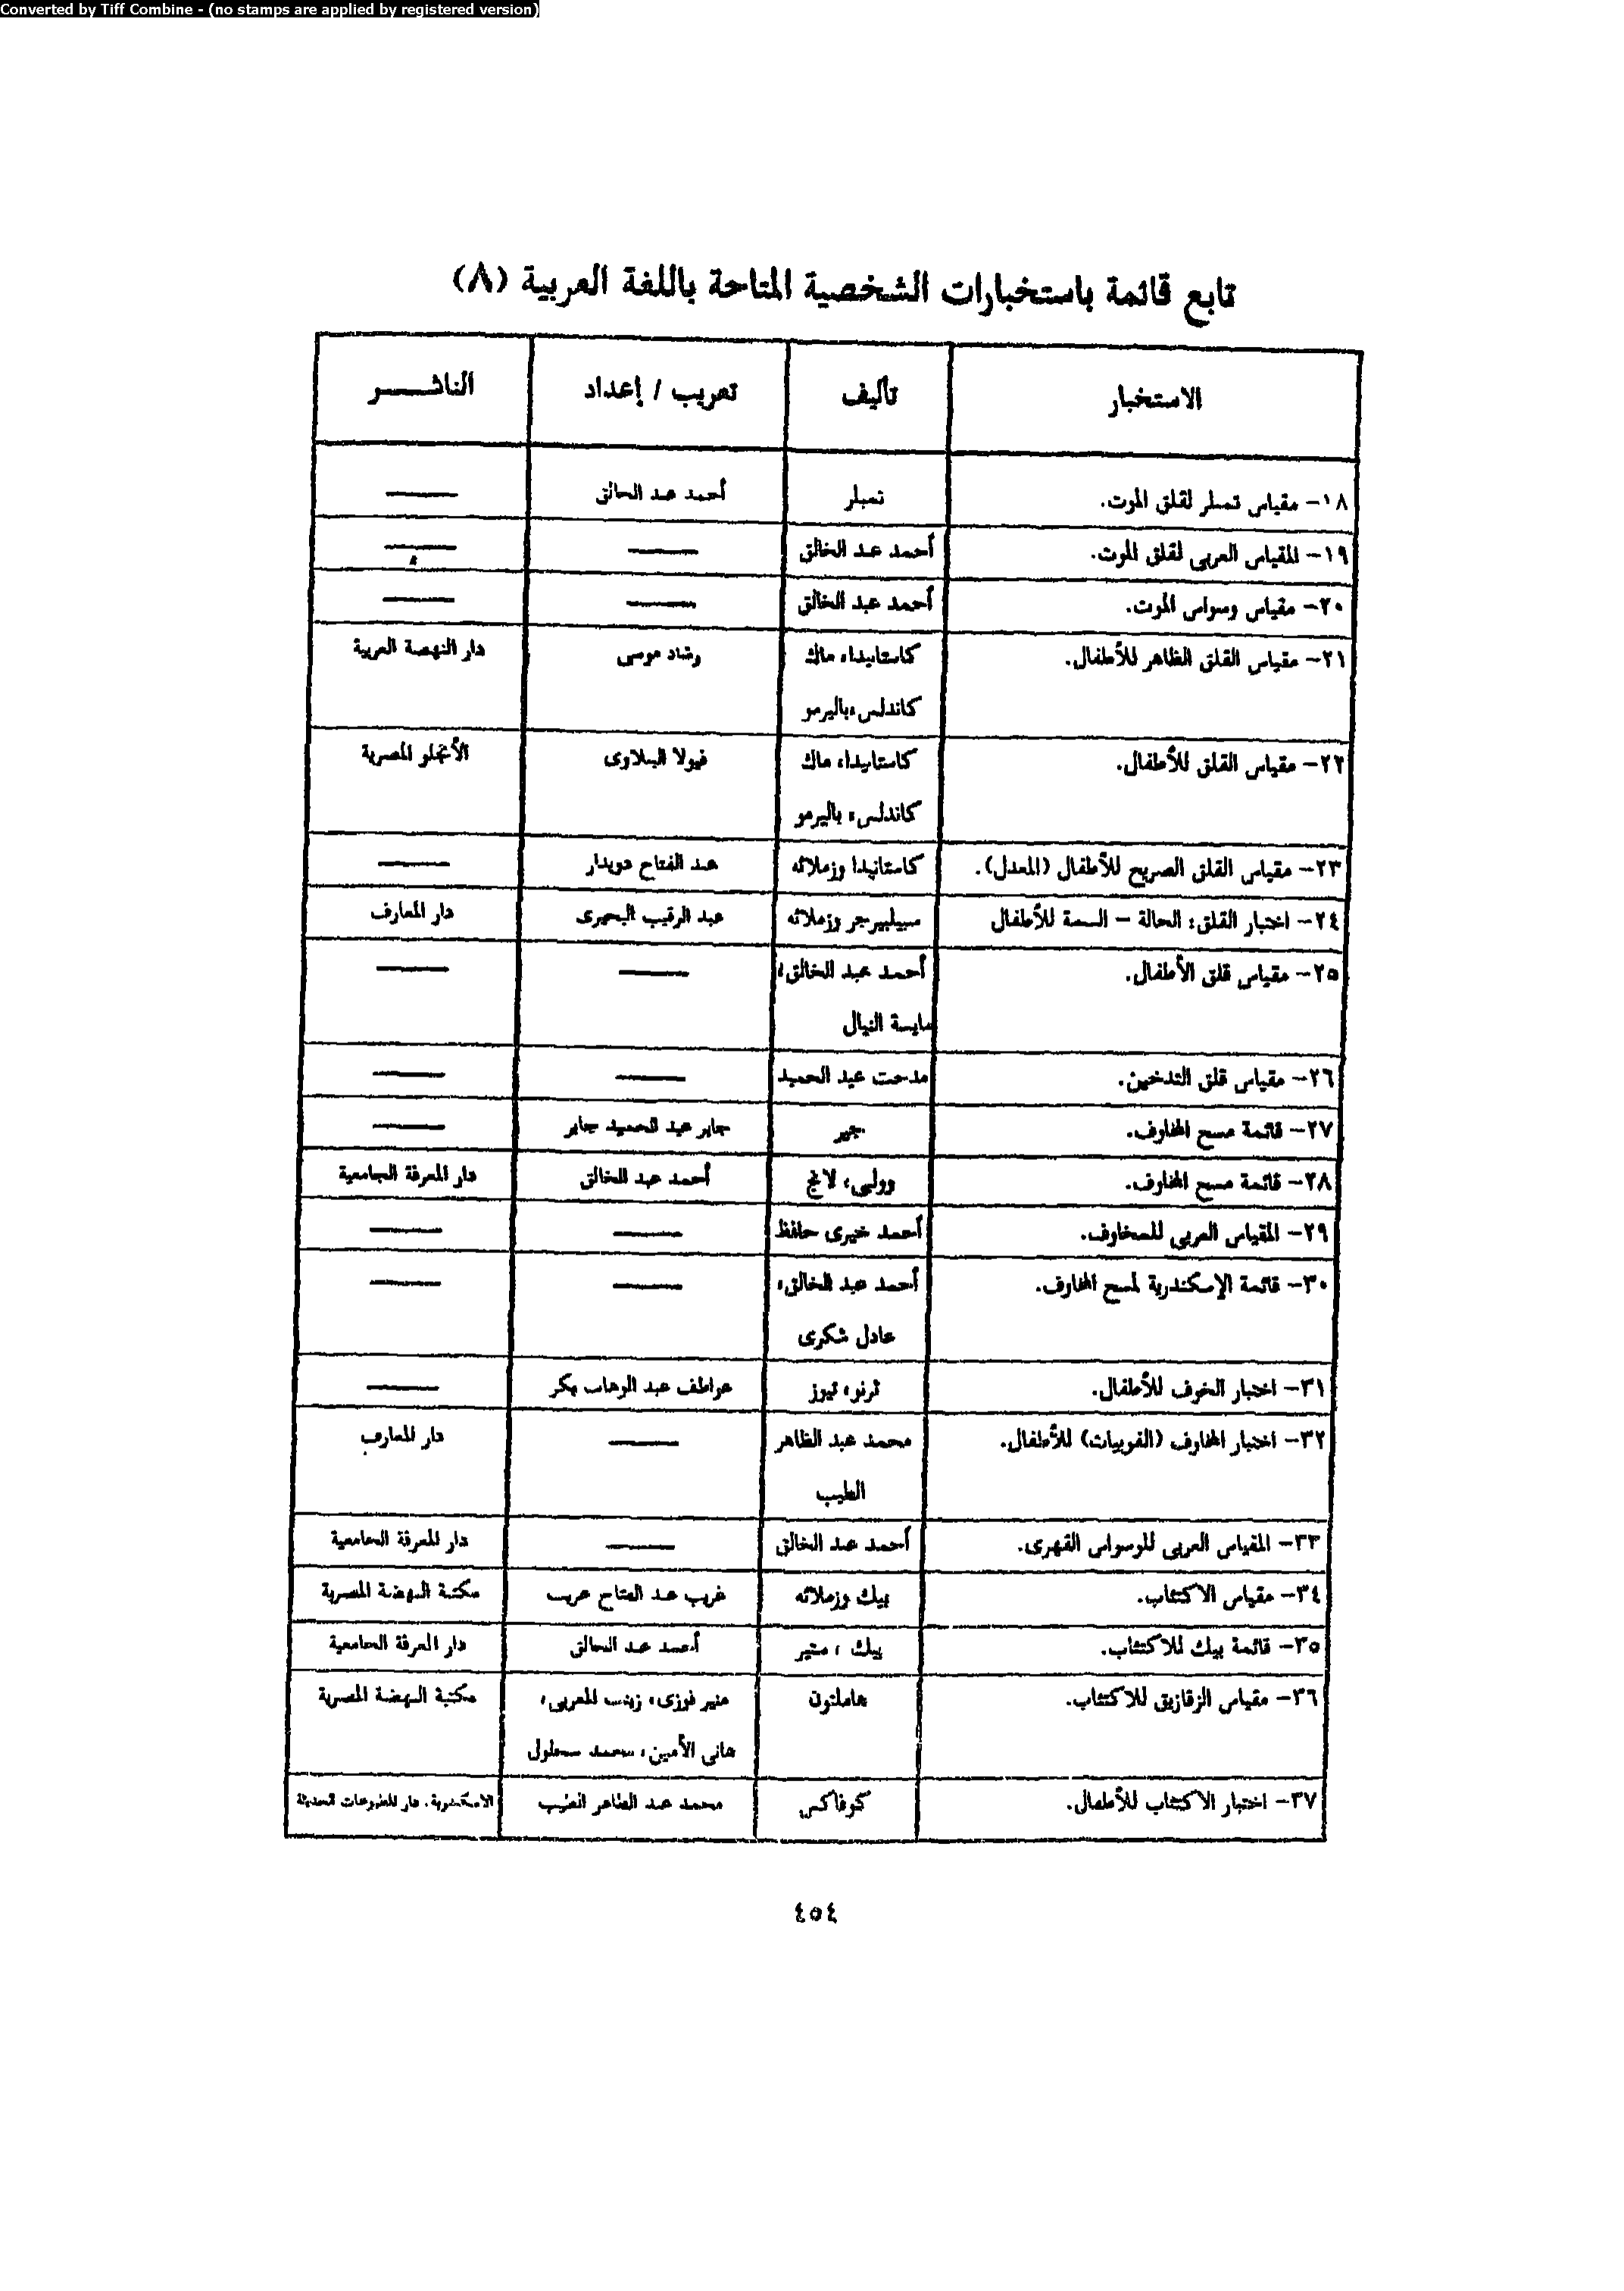 Converted by Tiff Combine - (no stamps are applied by registered version)
تابع قائمة باستخبارات الشخصية المتاحة باللغة العربية (٨)
الاستخبار تأليف تعريب / إعداد الناشـــــر
١٨- مقياس تمبلر لقلق الموت. تمبلر أحمد عبد الخالق ———
١٩- المقياس العربى لقلق الموت. أحمد عبد الخالق ——— ———
٢٠- مقياس وسواس الموت. أحمد عبد الخالق ——— ———
٢١- مقياس القلق الظاهر للأطفال. كاستانيدا، ماك رشاد موسى دار النهضة العربية
كاندلس، باليرمو
٢٢- مقياس القلق للأطفال. كاستانيدا، ماك فيولا الببلاوى الأنجلو المصرية
كاندلس، باليرمو
٢٣- مقياس القلق الصريح للأطفال (المعدل). كاستانيدا وزملائه عبد الفتاح دويدار ———
٢٤- اختبار القلق: الحالة – السمة للأطفال سبيلبيرجر وزملائه عبد الرقيب البحيرى دار المعارف
٢٥- مقياس قلق الأطفال. أحمد عبد الخالق، ——— ———
مايسة النيال
٢٦- مقياس قلق التدخين. مدحت عبد الحميد ——— ———
٢٧- قائمة مسح المخاوف. جير جابر عبد الحميد جابر ———
٢٨- قائمة مسح المخاوف. وولبى، لانج أحمد عبد الخالق دار المعرفة الجامعية
٢٩- المقياس العربى للمخاوف. أحمد خيرى حافظ ——— ———
٣٠- قائمة الإسكندرية لمسح المخاوف. أحمد عبد الخالق، ——— ———
عادل شكرى
٣١- اختبار الخوف للأطفال. ترنو، تيوز عواطف عبد الوهاب بكر ———
٣٢- اختبار المخاوف (الفوبيات) للأطفال. محمد عبد الظاهر ——— دار المعارف
الطيب
٣٣- المقياس العربى للوسواس القهرى. أحمد عبد الخالق ——— دار المعرفة الجامعية
٣٤- مقياس الاكتئاب. بيك وزملائه غريب عبد الفتاح غريب مكتبة النهضة المصرية
٣٥- قائمة بيك للاكتئاب. بيك ، ستير أحمد عبد الخالق دار المعرفة الجامعية
٣٦- مقياس الزقازيق للاكتئاب. هاملتون منير فوزى، زينب المغربى، مكتبة النهضة المصرية
هانى الأمين، محمد
٣٧- اختبار الاكتئاب للأطفال. كوفاكس محمد عبد الظاهر الطيب الاسكندرية، دار المطبوعات الحديثة
٤٥٤